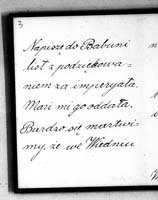 3
Napiszę do Babuni
list z podziękowa-
niem za imperyała.
Mari mi go oddała.
Bardzo się martwi-
my, że we Wiedniu